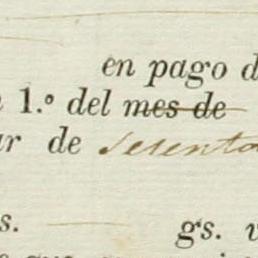 en pago d
1.º del mes de
ar de Setenta
s. gs. v